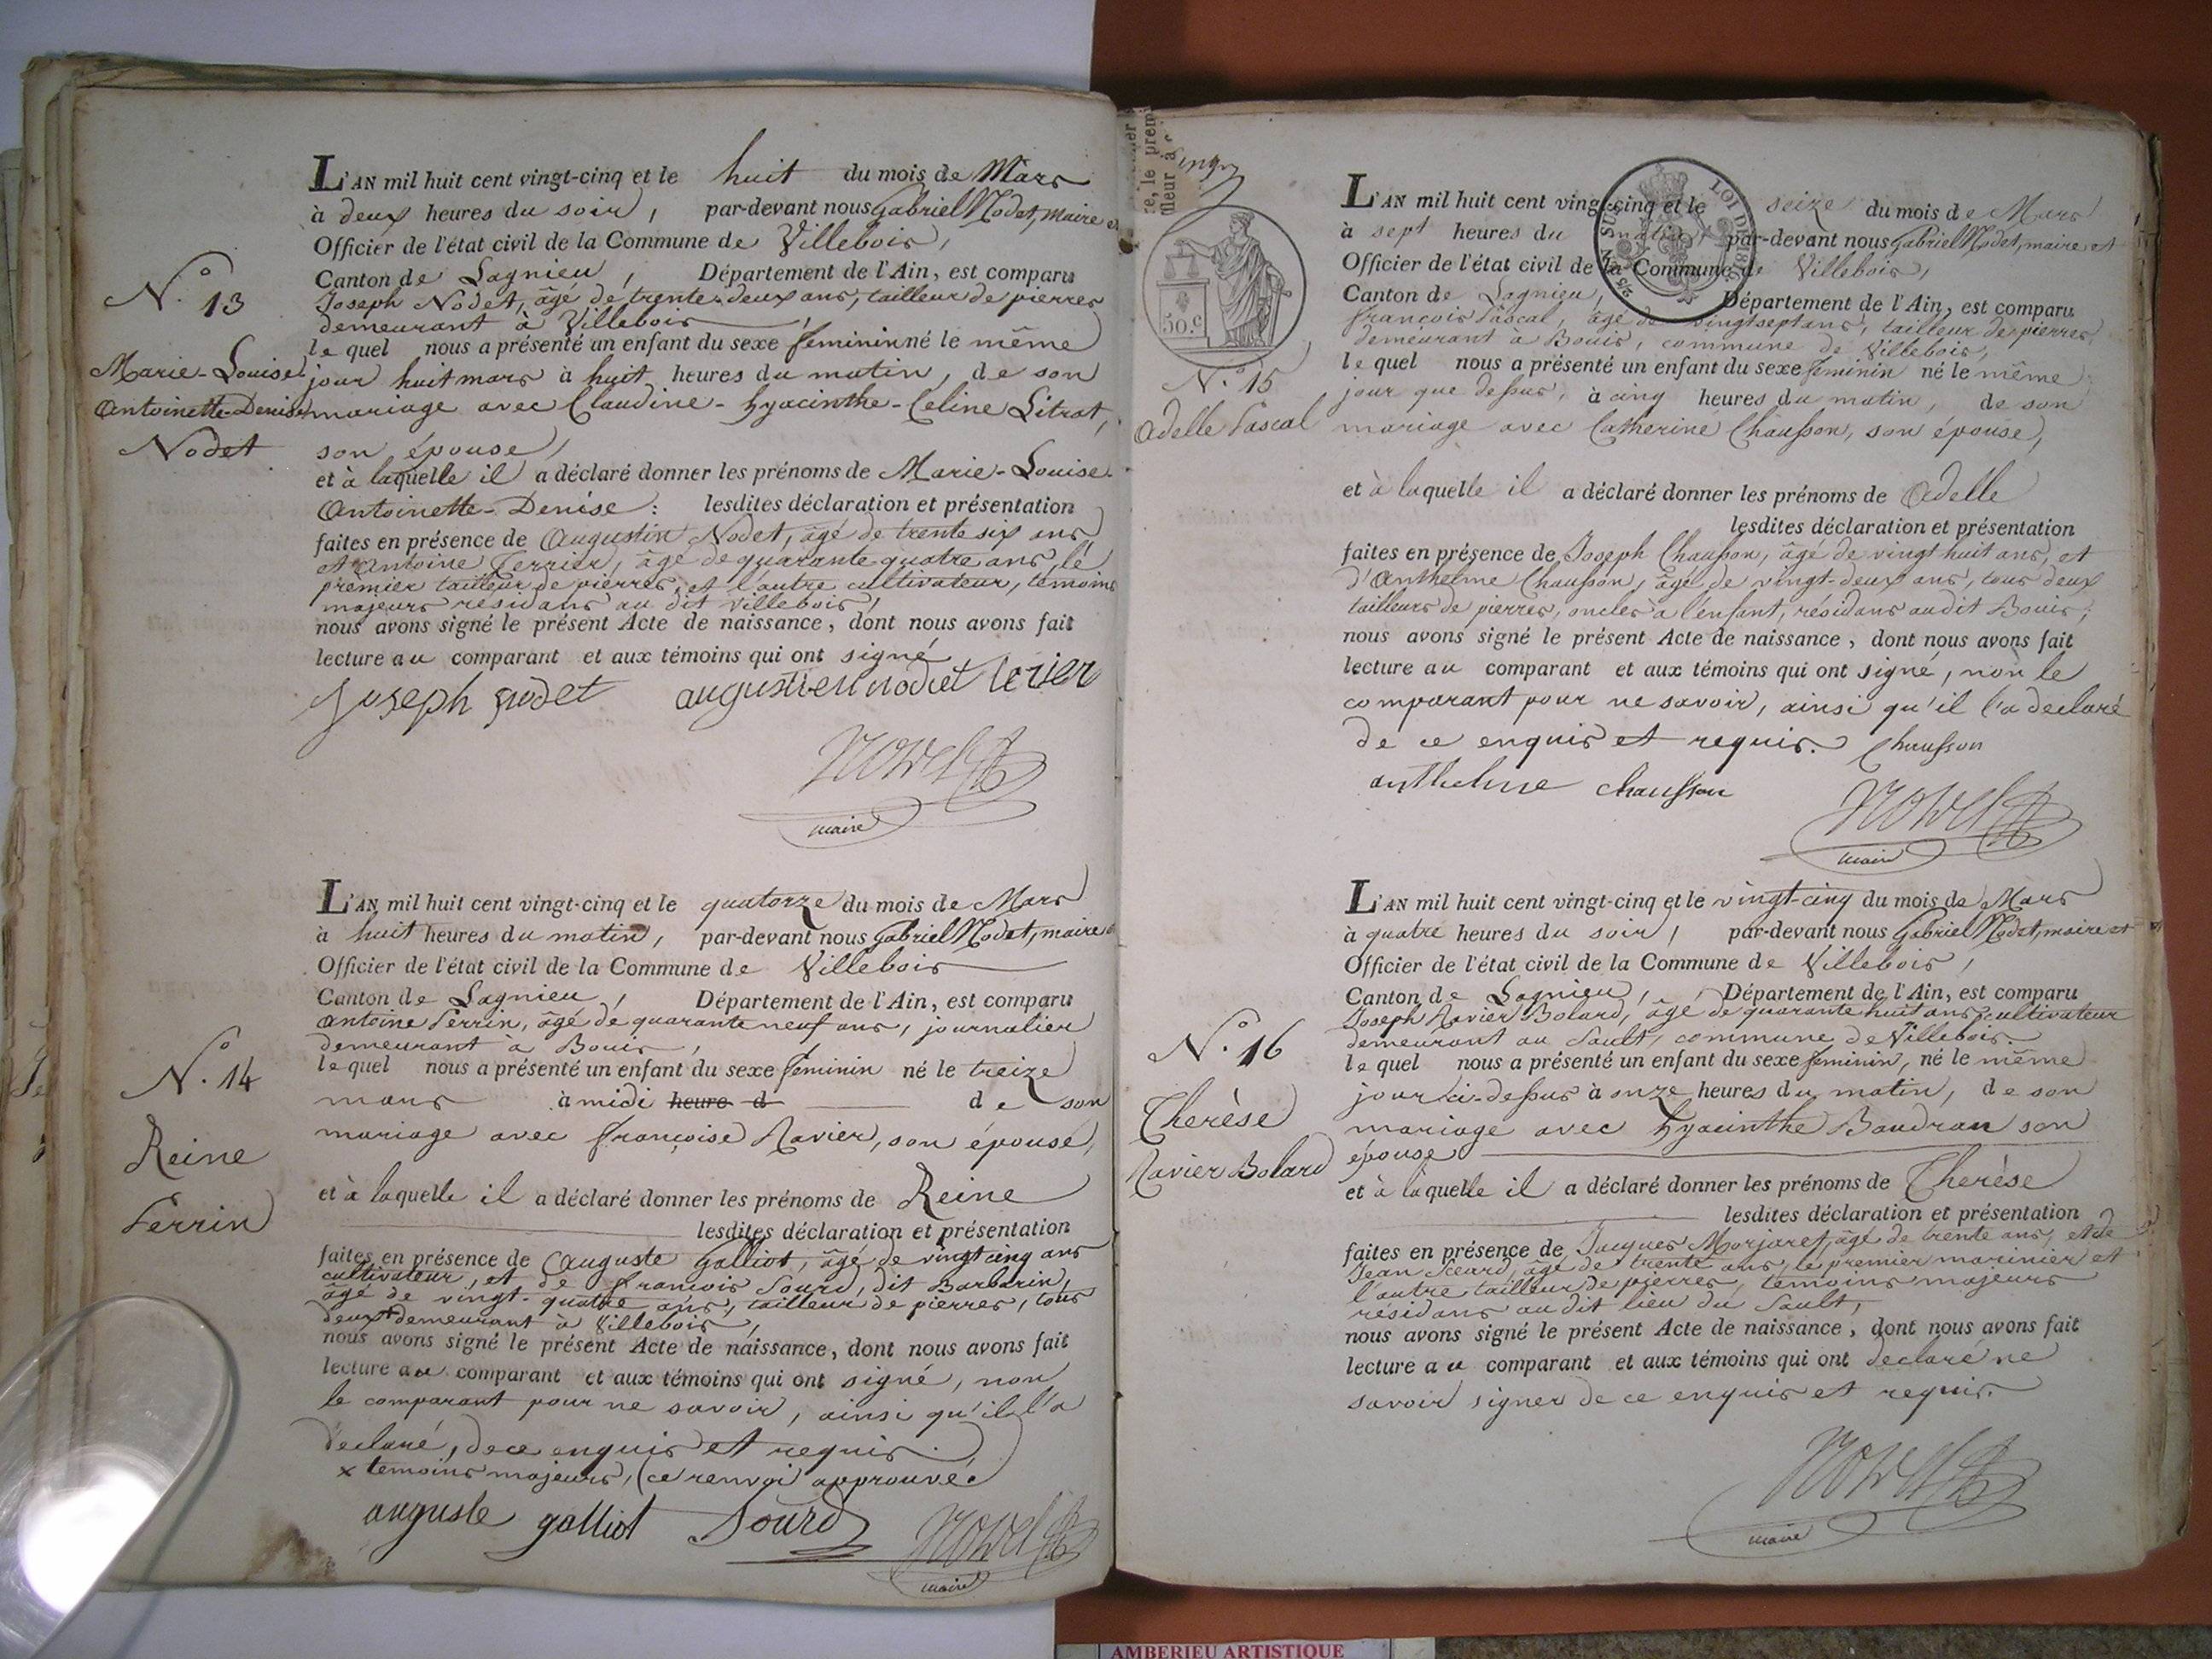 L'AN mil huit cent vingt-cinq et le huit du mois de Mars
à deux heures du soir, par-devant nous Gabriel Nodet, maire et
Officier de l'état civil de la Commune de Villebois,
Canton de Lagnieu, Département de l'Ain, est comparu
Joseph Nodet, âgé de trente-deux ans, tailleur de pierres
demeurant à Villebois,
lequel nous a présenté un enfant du sexe feminin né le même
jour huit mars à huit heures du matin, de son
mariage avec Claudine-Hyacinthe-Celine Litrat,
son épouse,
et à laquelle il a déclaré donner les prénoms de Marie-Louise-
Antoinette-Denise : lesdites déclaration et présentation
faites en présence de Augustin Nodet, âgé de trente six ans
et Antoine Terrier, âgé de quarante quatre ans, le
premier tailleur de pierres, et l'autre cultivateur, témoins
majeurs résidans au dit Villebois,
nous avons signé le présent Acte de naissance, dont nous avons fait
lecture au comparant et aux témoins qui ont signé
Joseph nodet augustien nodet terier
Nodet
maire
N.° 13
Marie-Louise
Antoinette-Denise
Nodet
L'AN mil huit cent vingt-cinq et le quatorze du mois de Mars
à huit heures du matin, par-devant nous Gabriel Nodet, maire et
Officier de l'état civil de la Commune de Villebois
Canton de Lagnieu, Département de l'Ain, est comparu
Antoine Perrin, âgé de quarante neuf ans, journalier
demeurant à Bouis,
lequel nous a présenté un enfant du sexe feminin né le treize
mars à midi heure d de son
mariage avec françoise Ravier, son épouse,
et à laquelle il a déclaré donner les prénoms de Reine
lesdites déclaration et présentation
faites en présence de Auguste Galliot, âgé de vingt cinq ans
cultivateur, et de françois Sourd, dit Barbarin,
âgé de vingt-quatre ans, tailleur de pierres, tous
deux x demeurant à Villebois,
nous avons signé le présent Acte de naissance, dont nous avons fait
lecture au comparant et aux témoins qui ont signé, non
le comparant pour ne savoir, ainsi qu'il l'a
déclaré, de ce enquis et requis.
x temoins majeurs, (ce renvoi approuvé)
auguste galliot Sourd Nodet
maire
N.° 14
Reine
Perrin
re, le premi
lleur à
50.c
LOI DE 1816.
L'AN mil huit cent vingt-cinq et le seize du mois de Mars
à sept heures du matin, par-devant nous Gabriel Nodet, maire et
Officier de l'état civil de la Commune de Villebois,
Canton de Lagnieu, Département de l'Ain, est comparu
françois Pascal, âgé de vingt sept ans, tailleur de pierres,
demeurant à Bouis, commune de Villebois,
lequel nous a présenté un enfant du sexe feminin né le même
jour que dessus, à cinq heures du matin, de son
mariage avec Catherine Chausson, son épouse,
et à laquelle il a déclaré donner les prénoms de Adelle
lesdites déclaration et présentation
faites en présence de Joseph Chausson, âgé de vingt huit ans, et
d'Anthelme Chausson, âgé de vingt-deux ans, tous deux
tailleurs de pierres, oncles à l'enfant, résidans audit Bouis;
nous avons signé le présent Acte de naissance, dont nous avons fait
lecture au comparant et aux témoins qui ont signé, non le
comparant pour ne savoir, ainsi qu'il l'a declaré
de ce enquis et requis. Chausson
anthelme chausson
Nodet
maire
N.° 15
Adelle Pascal
L'AN mil huit cent vingt-cinq et le vingt-cinq du mois de Mars
à quatre heures du soir, par-devant nous Gabriel Nodet, maire et
Officier de l'état civil de la Commune de Villebois,
Canton de Lagnieu, Département de l'Ain, est comparu
Joseph Ravier Bolard, âgé de quarante huit ans, cultivateur
demeurant au Sault, commune de Villebois.
lequel nous a présenté un enfant du sexe feminin, né le même
jour ci-dessus à onze heures du matin, de son
mariage avec hyacinthe Baudran son
épouse
et à laquelle il a déclaré donner les prénoms de Therèse
lesdites déclaration et présentation
faites en présence de Jacques Morjaret, âgé de trente ans, et de
Jean Sceard, âgé de trente ans, le premier marinier et
l'autre tailleur de pierres, témoins majeurs
résidans au dit lieu du Sault,
nous avons signé le présent Acte de naissance, dont nous avons fait
lecture au comparant et aux témoins qui ont declaré ne
savoir signer de ce enquis et requis.
Nodet
maire
N.° 16
Therèse
Ravier Bolard
AMBERIEU ARTISTIQUE